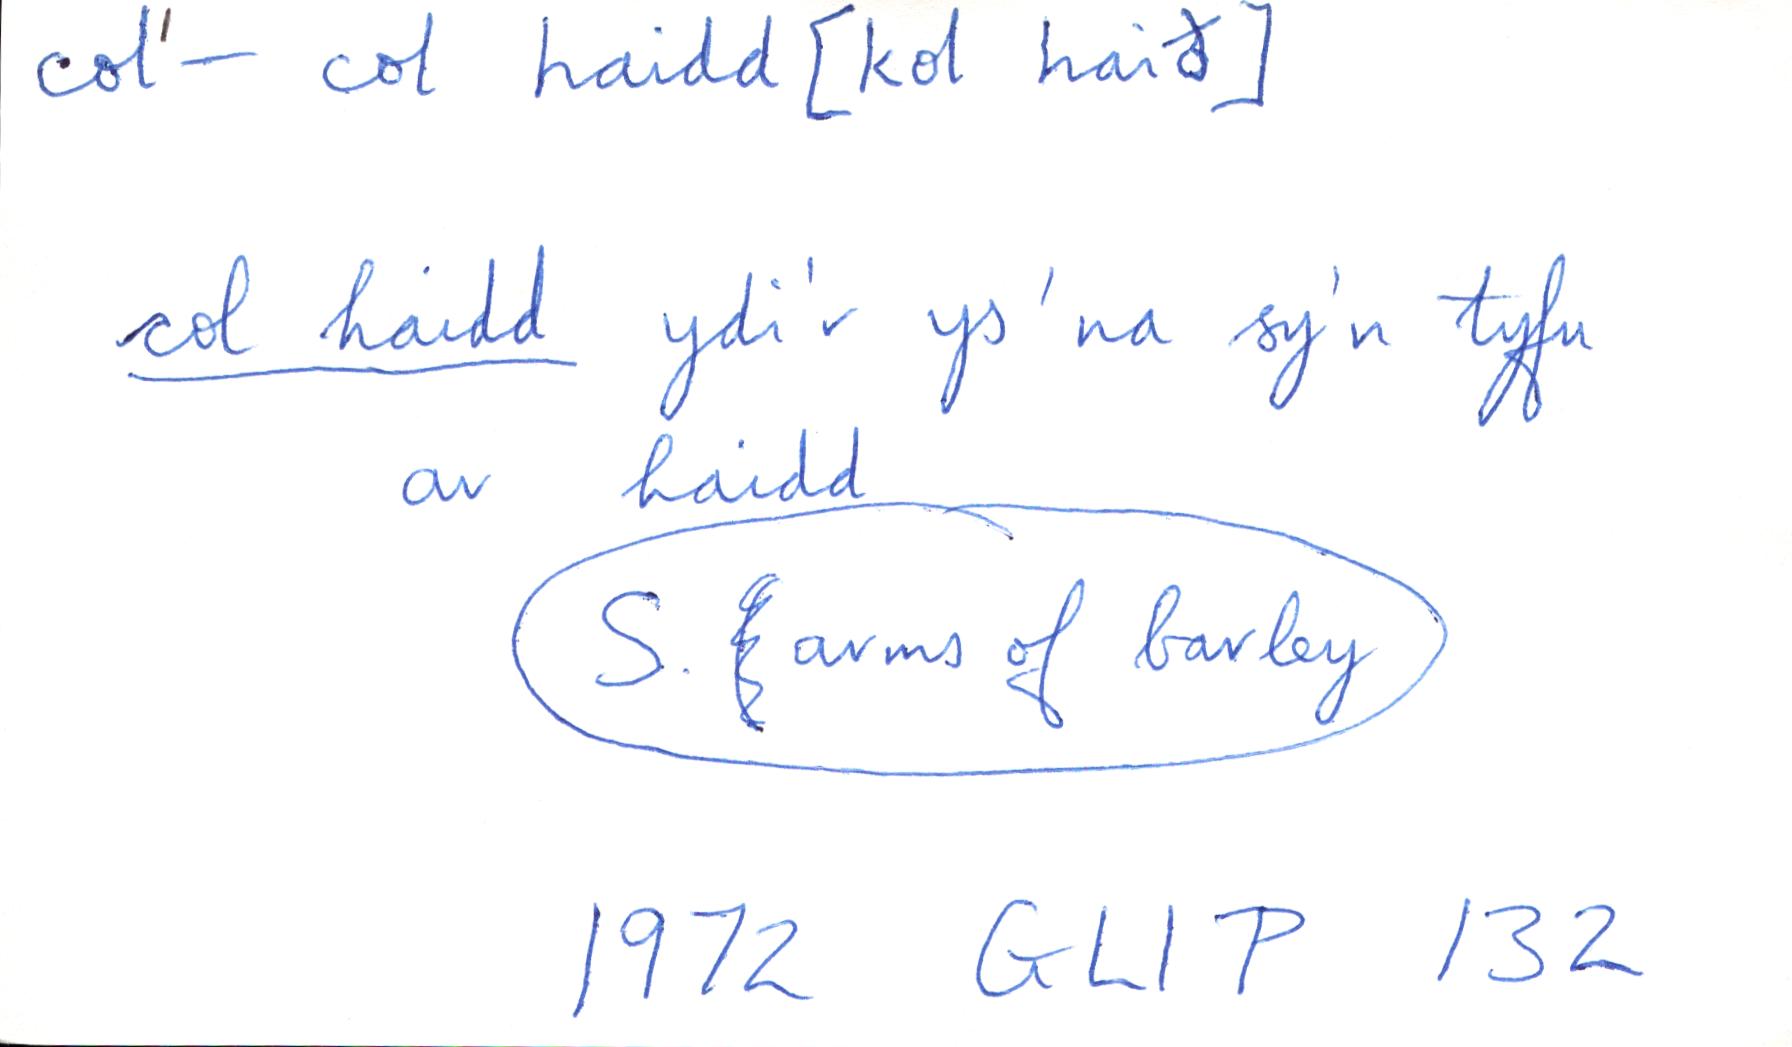 col' – col haidd [kol haið]
col haidd ydi'r ys 'na sy'n tyfu
ar haidd
S. { arms of barley
1972 GLlP 132